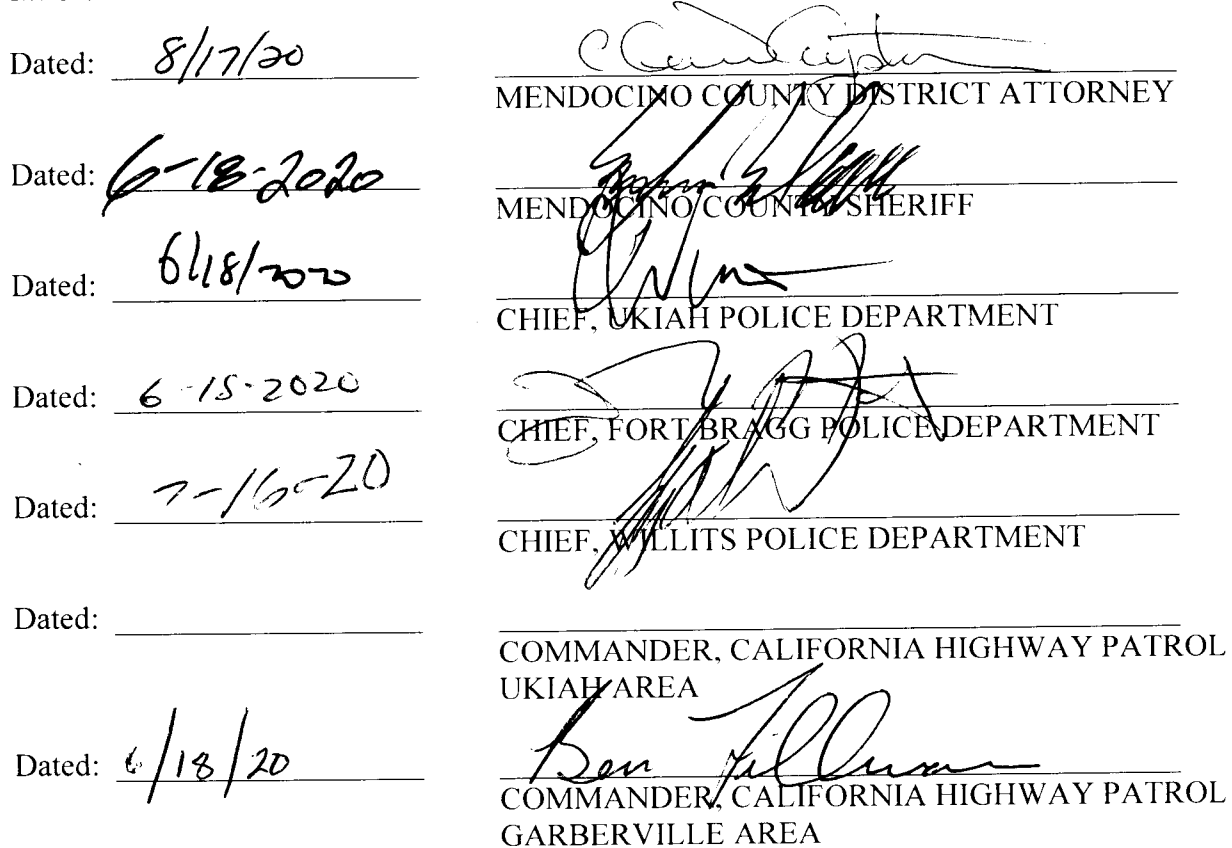 Dated: 8/17/20
MENDOCINO COUNTY DISTRICT ATTORNEY
Dated: 6-18-2020
MENDOCINO COUNTY SHERIFF
Dated: 6/18/2020
CHIEF, UKIAH POLICE DEPARTMENT
Dated: 6-18-2020
CHIEF, FORT BRAGG POLICE DEPARTMENT
Dated: 7-16-20
CHIEF, WILLITS POLICE DEPARTMENT
Dated:
COMMANDER, CALIFORNIA HIGHWAY PATROL
UKIAH AREA
Dated: 6/18/20
Ben
COMMANDER, CALIFORNIA HIGHWAY PATROL
GARBERVILLE AREA